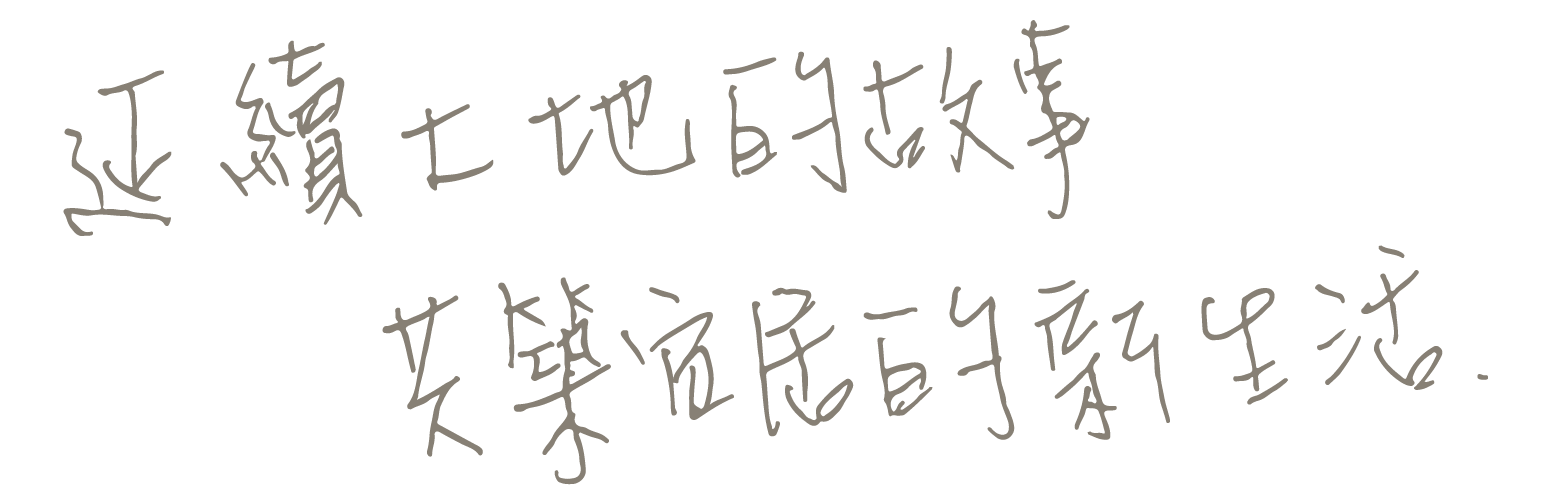 延續土地的故事
共築宜居的新生活.